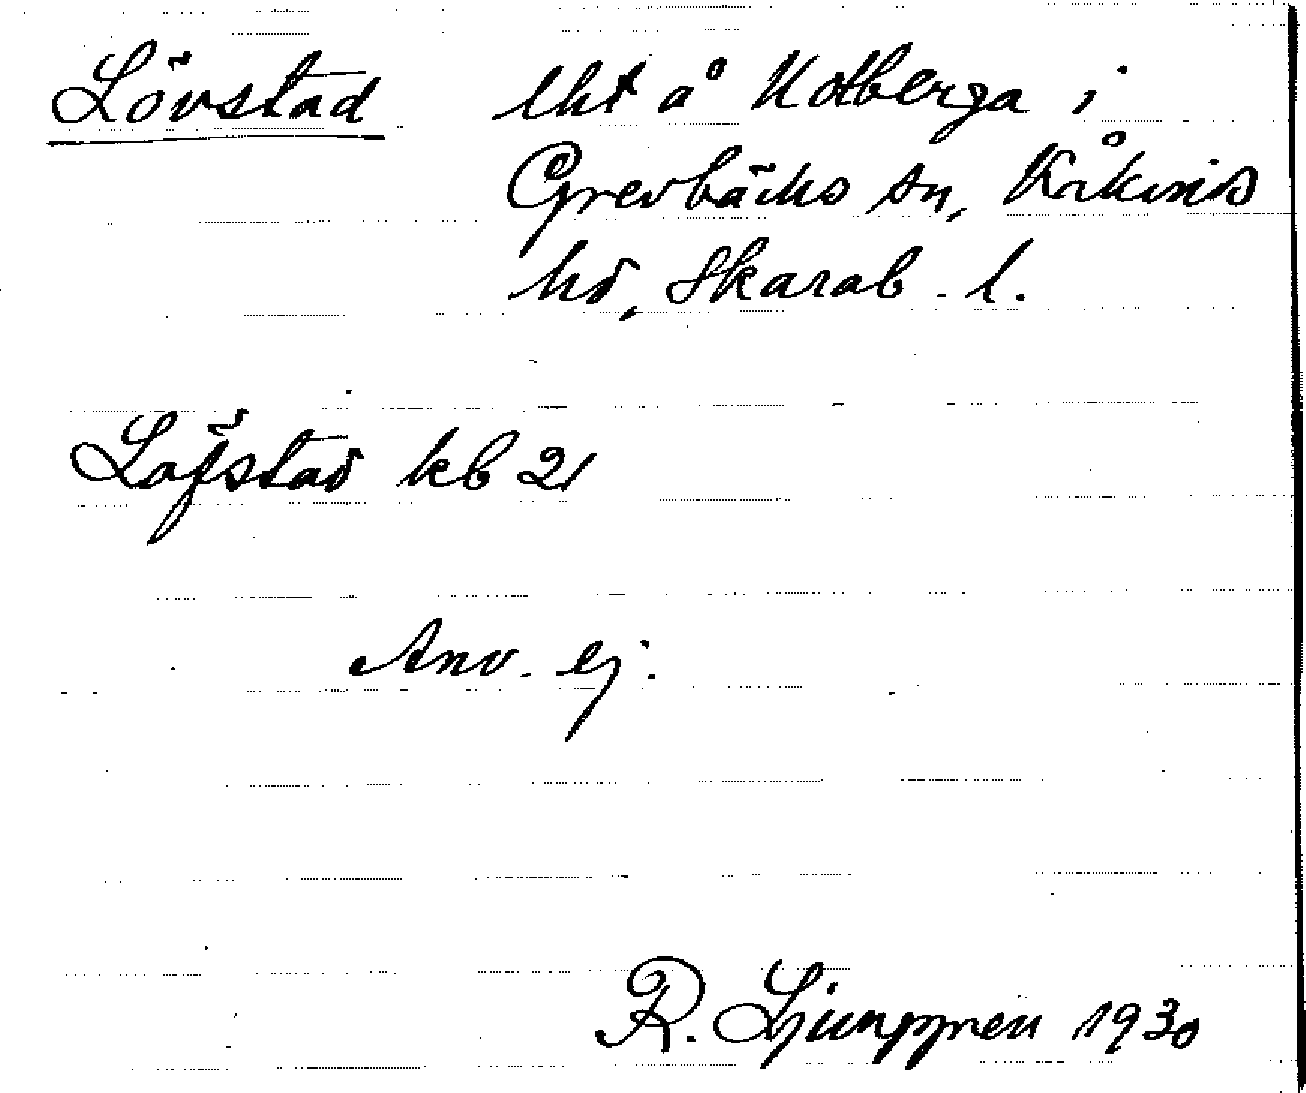 Lövstad lht å Kolberga i
Grevbäcks sn, Kåkinds
hd, Skarab. l.
Löfstad kb 21
Anv. ej.
R. Ljunggren 1930